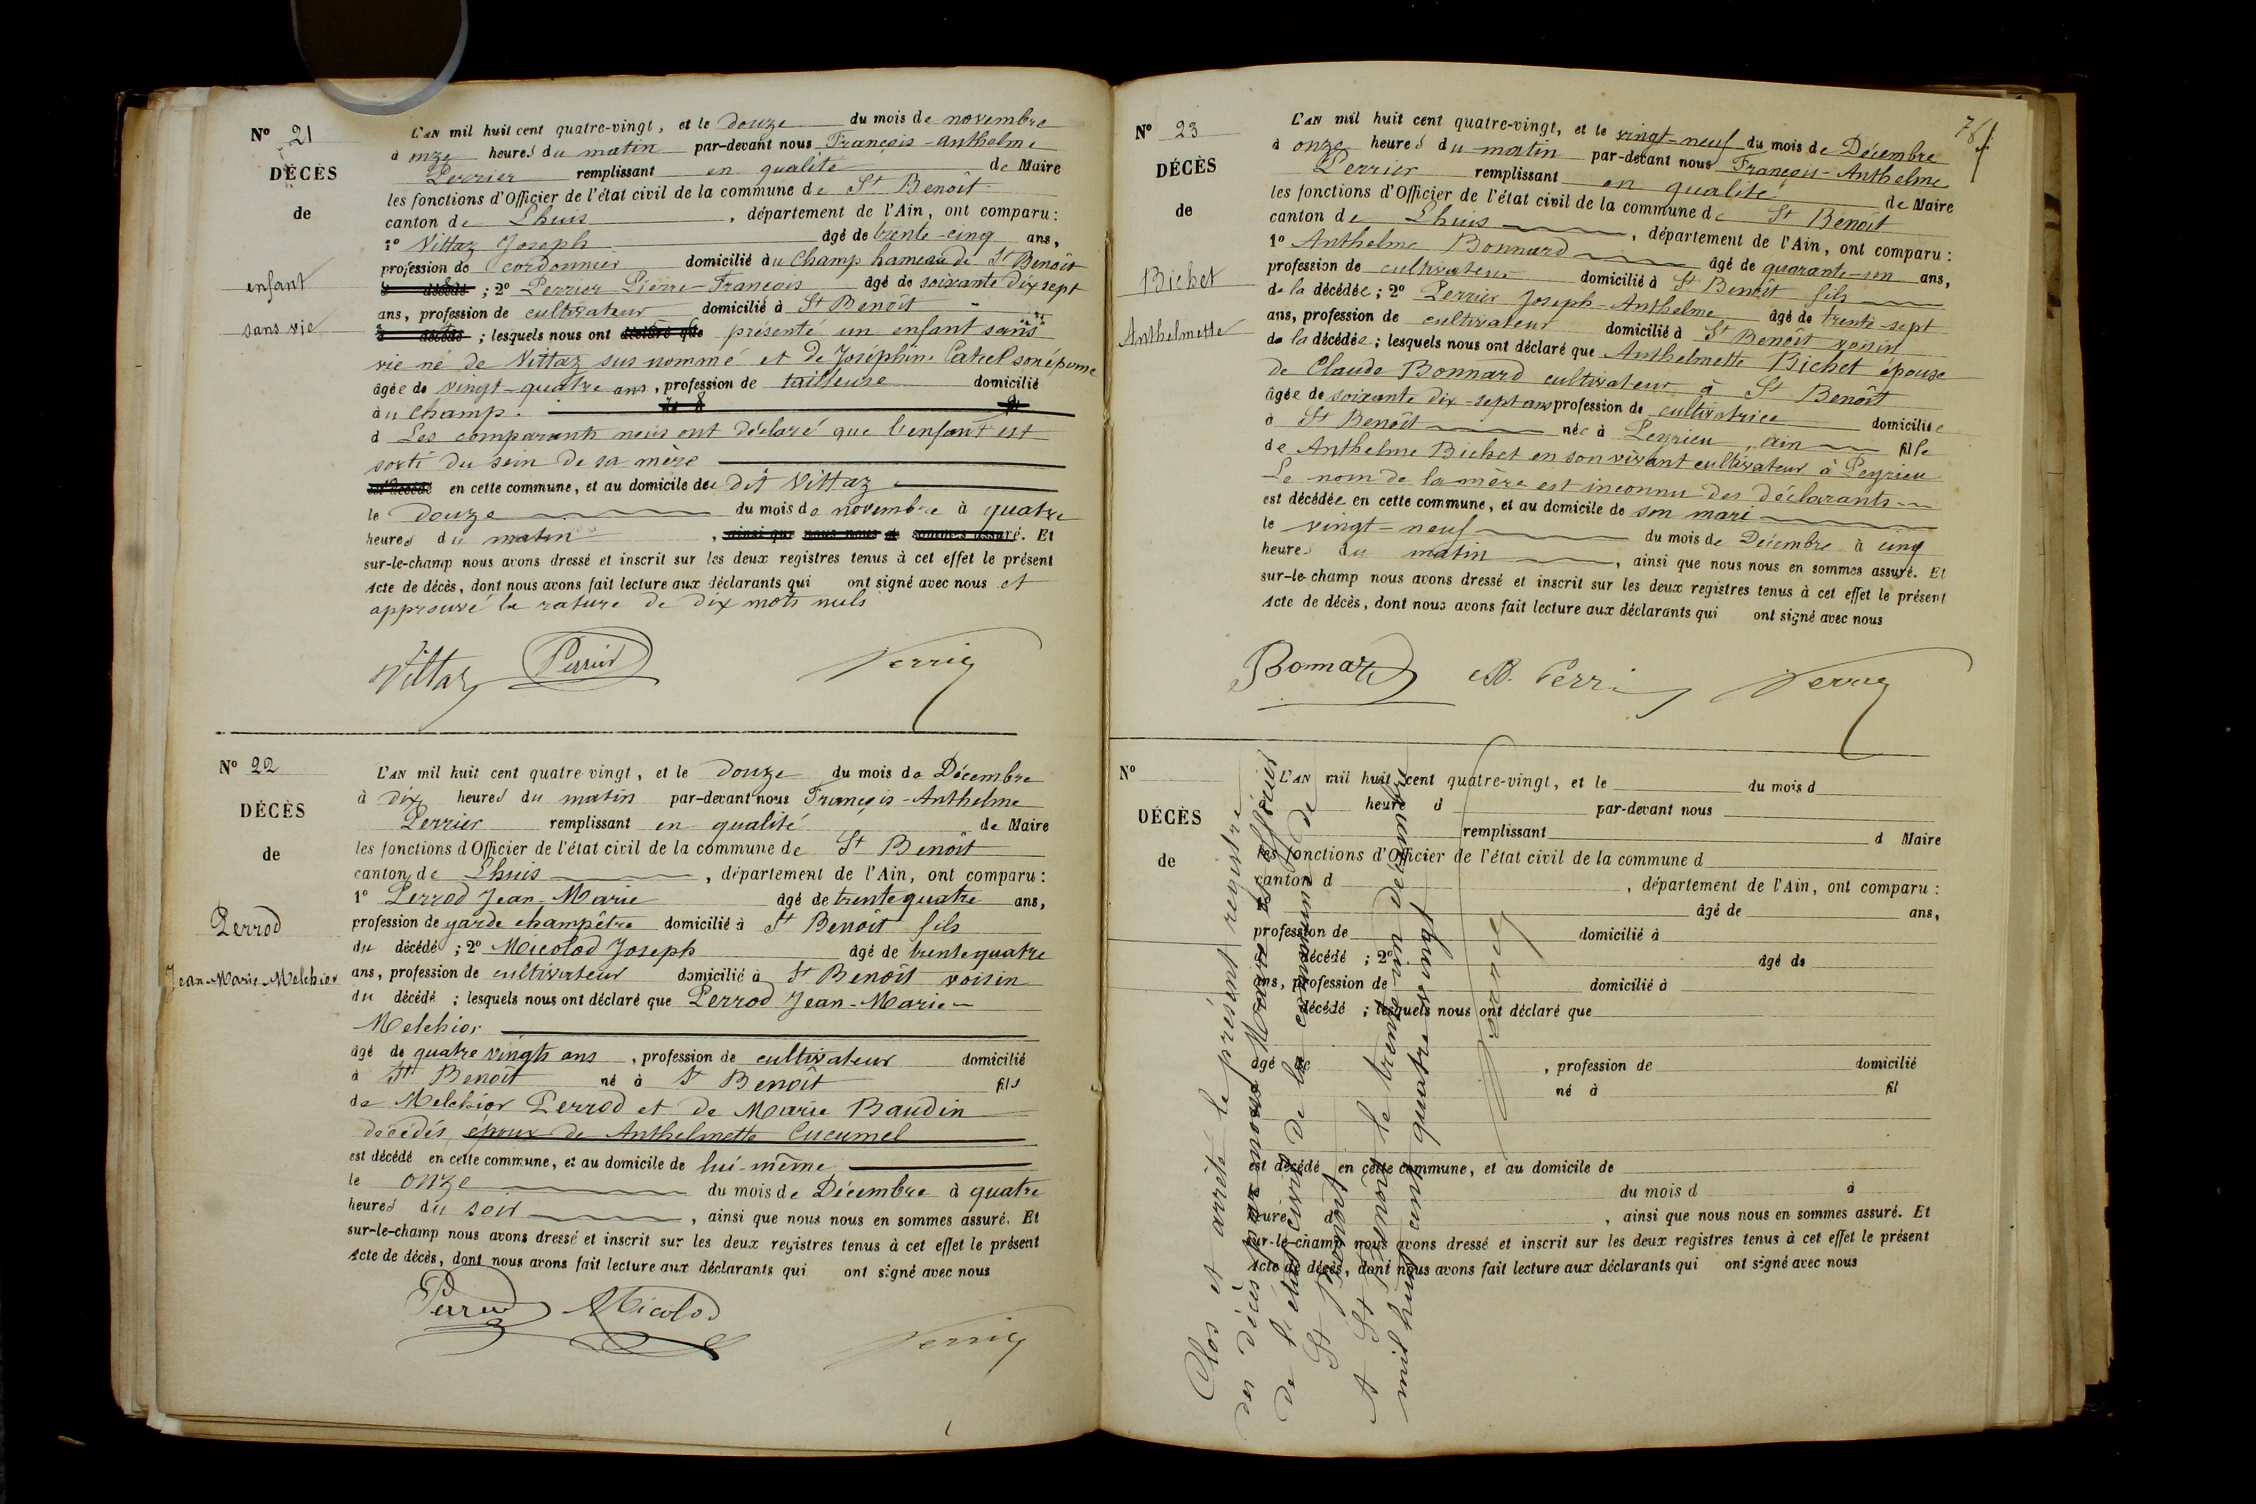 N° 21
DÉCÈS
de
enfant
sans vie
L'AN mil huit cent quatre-vingt, et le douze du mois de novembre
à onze heures du matin par-devant nous François-Anthelme
Perrier remplissant en qualité de Maire
les fonctions d'Officier de l'état civil de la commune de St Benoît
canton de Lhuis, département de l'Ain, ont comparu:
1° Vittaz Joseph âgé de trente-cinq ans,
profession de cordonnier domicilié au Champ hameau de St Benoît
décédé ; 2° Perrier Pierre-François âgé de soixante dix sept
ans, profession de cultivateur domicilié à St Benoît
décédé ; lesquels nous ont déclaré que présenté un enfant sans
vie né de Vittaz sus nommé et de Joséphine son épouse
âgée de vingt-quatre ans, profession de tailleuse domicilié
au Champ.
d Les comparants nous ont déclaré que l'enfant est
sorti du sein de sa mère
est décédé en cette commune, et au domicile de dit Vittaz
le douze du mois de novembre à quatre
heures du matin, ainsi que nous nous en sommes assuré. Et
sur-le-champ nous avons dressé et inscrit sur les deux registres tenus à cet effet le présent
Acte de décès, dont nous avons fait lecture aux déclarants qui ont signé avec nous et
approuvé la rature de dix mots nuls
Vittaz Perrier Perrier
N° 22
DÉCÈS
de
Perrod
Jean-Marie-Melchior
L'AN mil huit cent quatre vingt, et le douze du mois de Décembre
à dix heures du matin par-devant nous François-Anthelme
Perrier remplissant en qualité de Maire
les fonctions d'Officier de l'état civil de la commune de St Benoît
canton de Lhuis, département de l'Ain, ont comparu:
1° Perrod Jean-Marie âgé de trente quatre ans,
profession de garde champêtre domicilié à St Benoît fils
du décédé ; 2° Micolod Joseph âgé de trente quatre
ans, profession de cultivateur domicilié à St Benoît voisin
du décédé ; lesquels nous ont déclaré que Perrod Jean-Marie-
Melchior
âgé de quatre vingts ans, profession de cultivateur domicilié
à St Benoît né à St Benoît fils
de Melchior Perrod et de Marie Baudin
décédés époux de Anthelmette Cucumel
est décédé en cette commune, et au domicile de lui-même
le onze du mois de Décembre à quatre
heures du soir, ainsi que nous nous en sommes assuré. Et
sur-le-champ nous avons dressé et inscrit sur les deux registres tenus à cet effet le présent
Acte de décès, dont nous avons fait lecture aux déclarants qui ont signé avec nous
Perrod Micolod Perrier
N° 23
DÉCÈS
de
Bichet
Anthelmette
L'AN mil huit cent quatre-vingt, et le vingt-neuf du mois de Décembre
à onze heures du matin par-devant nous François-Anthelme
Perrier remplissant en qualité de Maire
les fonctions d'Officier de l'état civil de la commune de St Benoît
canton de Lhuis, département de l'Ain, ont comparu:
1° Anthelme Bonnard âgé de quarante-un ans,
profession de cultivateur domicilié à St Benoît fils
de la décédée ; 2° Perrier Joseph-Anthelme âgé de trente-sept
ans, profession de cultivateur domicilié à St Benoît voisin
de la décédée ; lesquels nous ont déclaré que Anthelmette Bichet épouse
de Claude Bonnard cultivateur à St Benoît
âgée de soixante dix-sept ans profession de cultivatrice domiciliée
à St Benoît née à Peyrieu, Ain fille
de Anthelme Bichet en son vivant cultivateur à Peyrieu
Le nom de la mère est inconnu des déclarants
est décédée en cette commune, et au domicile de son mari
le vingt-neuf du mois de Décembre à cinq
heures du matin, ainsi que nous nous en sommes assuré. Et
sur-le-champ nous avons dressé et inscrit sur les deux registres tenus à cet effet le présent
Acte de décès, dont nous avons fait lecture aux déclarants qui ont signé avec nous
Bonnard Perrier
N°
DÉCÈS
de
L'AN mil huit cent quatre-vingt, et le du mois d
heure d par-devant nous
remplissant d Maire
les fonctions d'Officier de l'état civil de la commune d
canton d, département de l'Ain, ont comparu:
âgé de ans,
profession de domicilié à
décédé ; 2° âgé de
ans, profession de domicilié à
décédé ; lesquels nous ont déclaré que
âgé de, profession de domicilié
né à fil
est décédé en cette commune, et au domicile de
du mois d à
heure d, ainsi que nous nous en sommes assuré. Et
sur-le-champ nous avons dressé et inscrit sur les deux registres tenus à cet effet le présent
Acte de décès, dont nous avons fait lecture aux déclarants qui ont signé avec nous
Clos et arrêté le présent registre
des décès par nous Maire et officier
de l'état civil de la commune de
St Benoît
A St Benoît le trente-un décembre
mil huit cent quatre vingt
Perrier